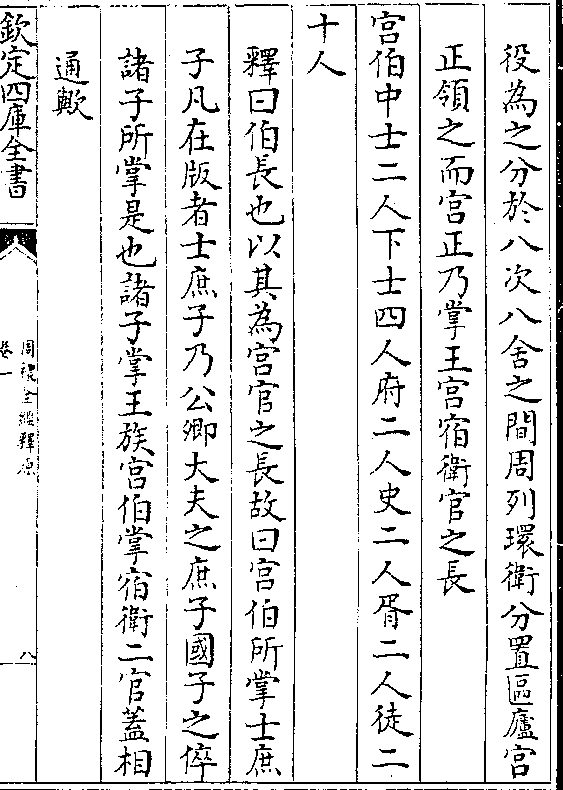 役為之分於八次八舍之間周列環衛分置區廬宫
正領之而宫正乃掌王宫宿衛官之長
宫伯中士二人下士四人府二人史二人胥二人徒二
十人
釋曰伯長也以其為宫官之長故曰宫伯所掌士庶
子凡在版者士庶子乃公卿大夫之庶子國子之倅
諸子所掌是也諸子掌王族宫伯掌宿衛二官蓋相
通歟
欽定四庫全書
周禮全經釋原
卷一
八